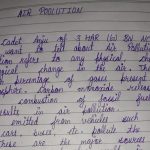 AIR POLLUTION
Cadet Anju of 3 HAR (G) BN NC
want to tell about Air Pollut
tion refers to any physical, ch
gical change in the air.
percentage of gases present
sphere. Carbon monoxide releas
combustion of fossil fu
results in air pollution.
emitted from vehicles such
cars, buses, etc. pollute the
These are the major sources